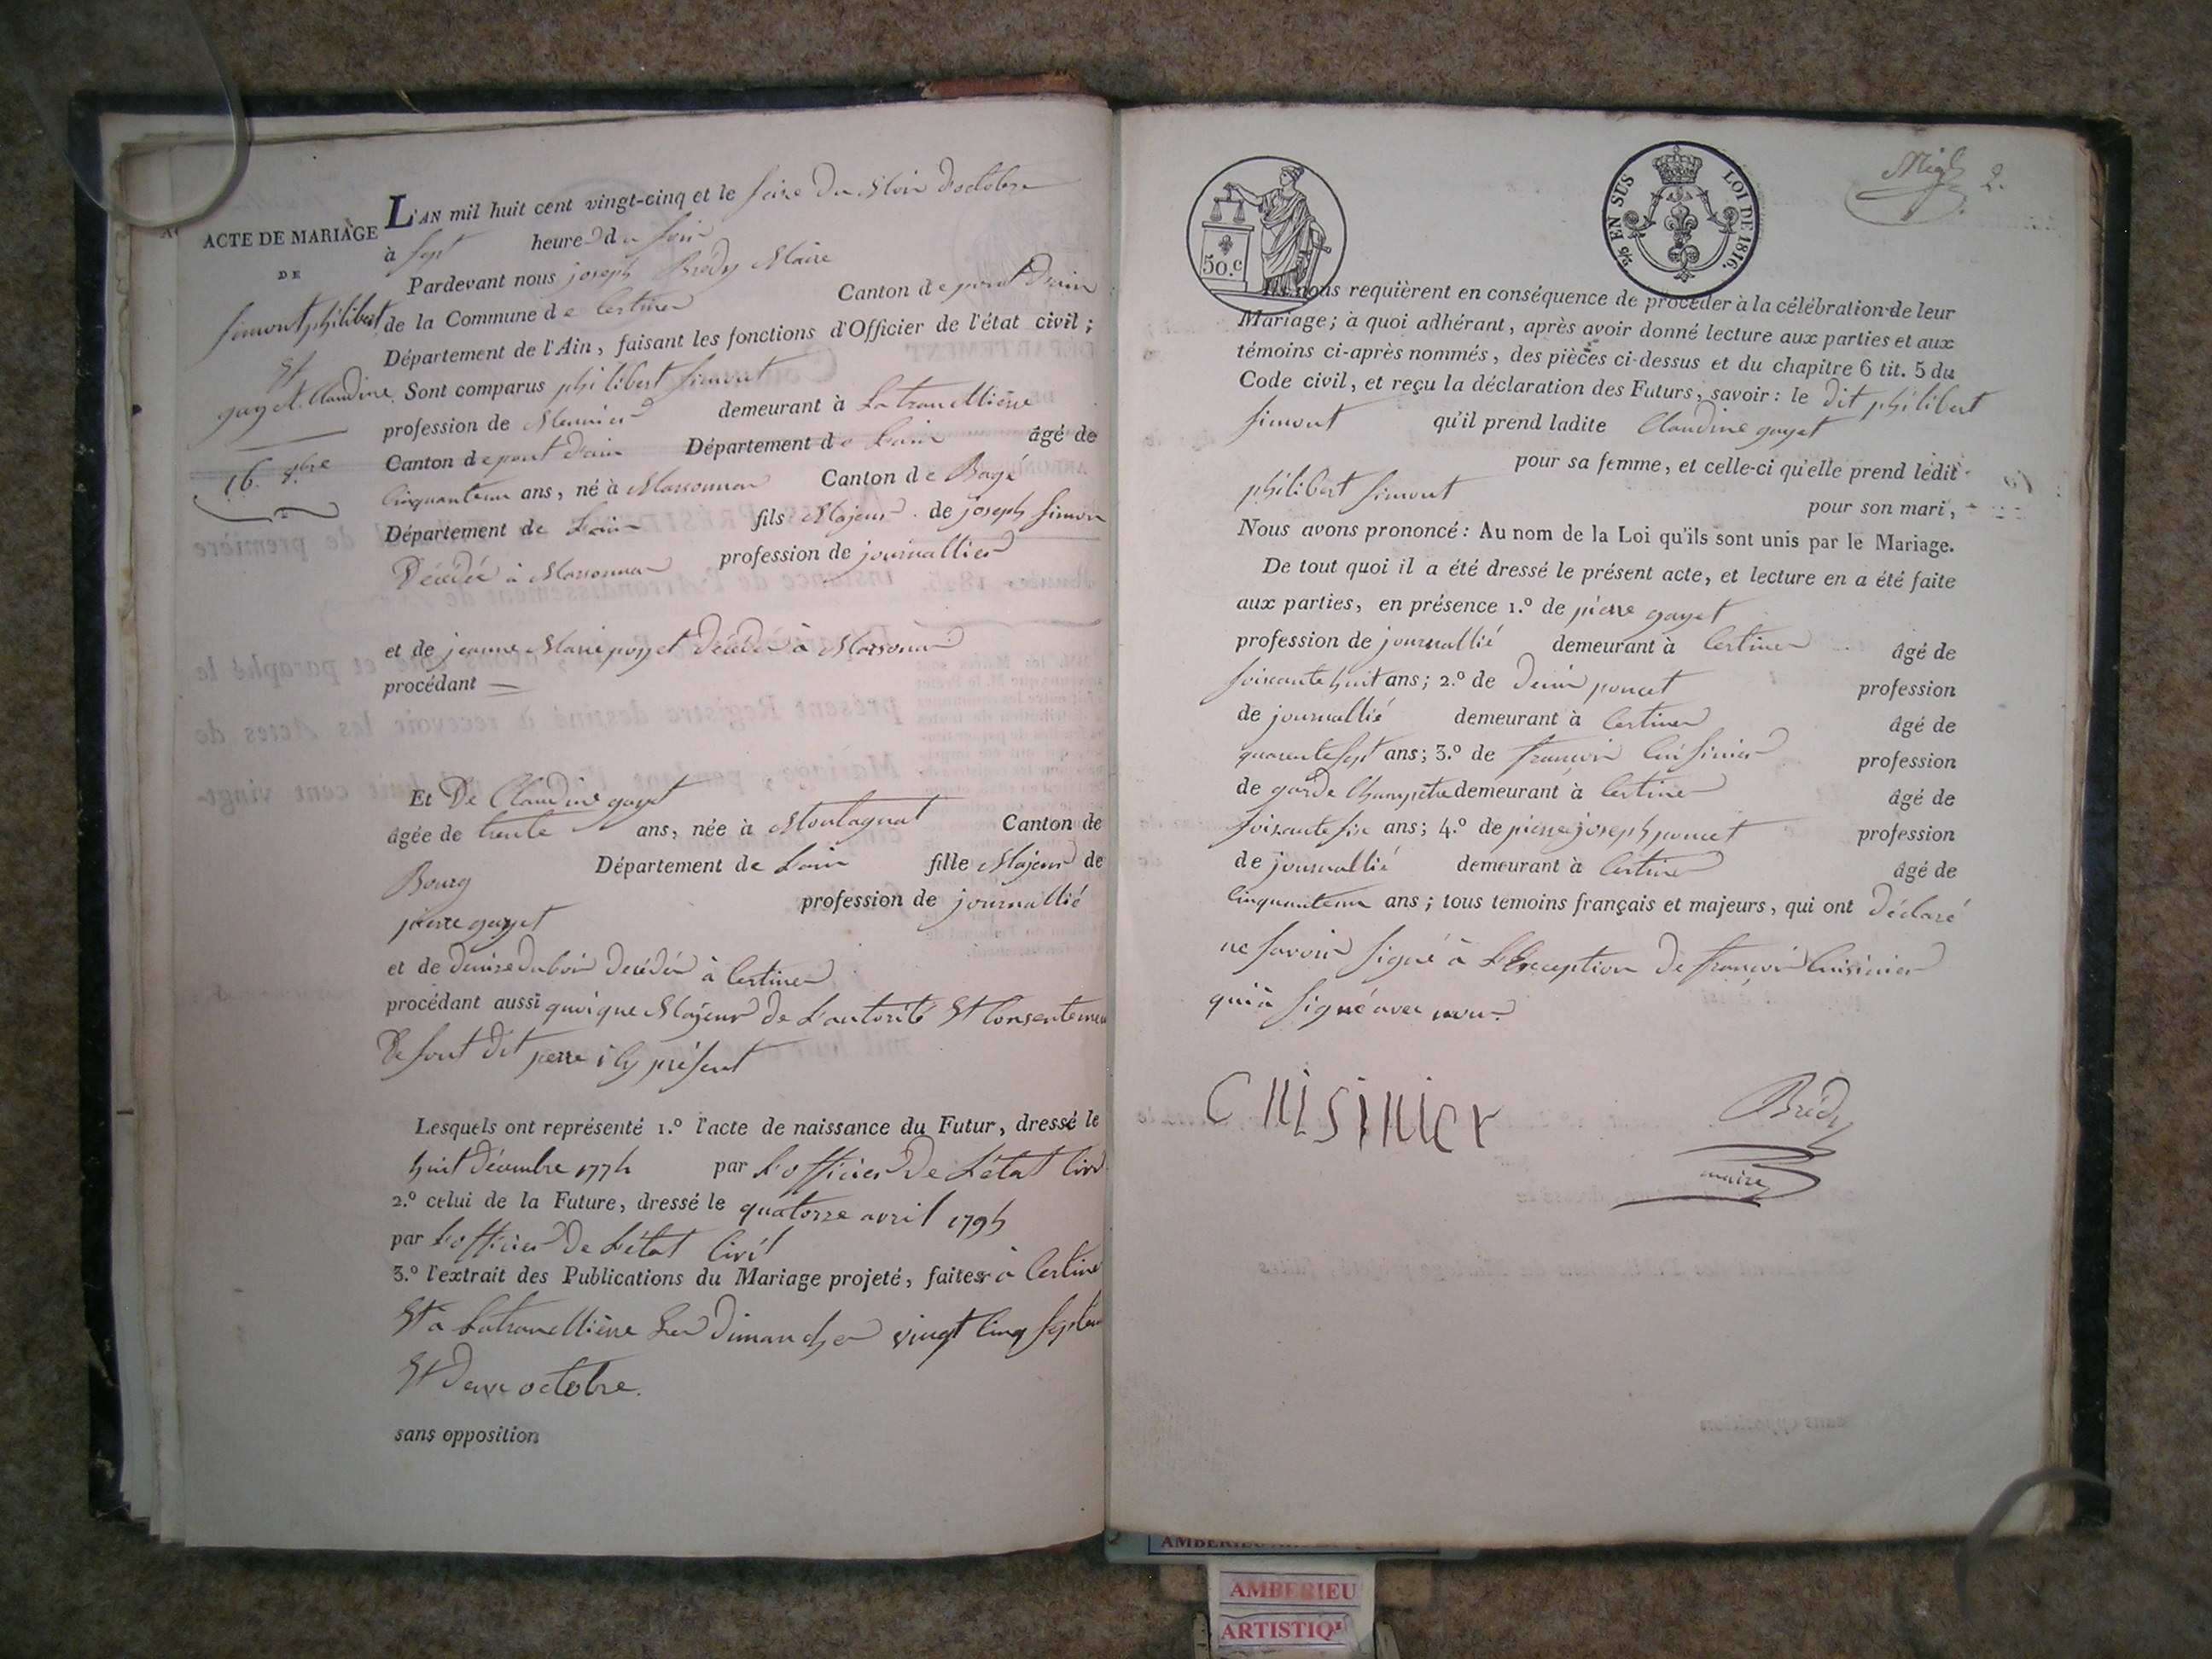 ACTE DE MARIAGE
DE
Simont philibert
Et
gayet Claudine
16. 8bre
L'AN mil huit cent vingt-cinq et le seize du Mois d'octobre
à sept heures du soir
Pardevant nous joseph Brédy Maire
de la Commune de Certines Canton de pont d'ain
Département de l'Ain, faisant les fonctions d'Officier de l'état civil;
Sont comparus philibert Simont
profession de Meunier demeurant à Latranclliere
Canton de pont d'ain Département de Lain âgé de
Cinquanteun ans, né à Marsonnas Canton de Bagé
Département de Lain fils Majeur de joseph Simon
Décédée à Marsonnas profession de journallier
et de jeanne Marie poyet décédée à Marsonnas
procédant
Et De Claudine gayet
âgée de trente ans, née à Montagnat Canton de
Bourg Département de Lain fille Majeur de
pierre gayet profession de journallié
et de denise dubois décédée à Certines
procédant aussi quoique Majeur de L'autorité Et Consentemen
De sont dit perre icy présent
Lesquels ont représenté 1.º l'acte de naissance du Futur, dressé le
huit décembre 1774 par L'officier De L'état Civil
2.º celui de la Future, dressé le quatorze avril 1795
par L'officier De L'état Civil
3.º l'extrait des Publications du Mariage projeté, faites à Certine
Et à Latranclliere Les Dimanches vingt Cinq septem
Et Deux octobre.
sans opposition
50.c
2/5 EN SUS LOI DE 1816.
2.
Ils nous requièrent en conséquence de procéder à la célébration de leur
Mariage; à quoi adhérant, après avoir donné lecture aux parties et aux
témoins ci-après nommés, des pièces ci-dessus et du chapitre 6 tit. 5 du
Code civil, et reçu la déclaration des Futurs, savoir: le dit philibert
Simont qu'il prend ladite Claudine gayet
pour sa femme, et celle-ci qu'elle prend ledit
philibert Simont pour son mari,
Nous avons prononcé: Au nom de la Loi qu'ils sont unis par le Mariage.
De tout quoi il a été dressé le présent acte, et lecture en a été faite
aux parties, en présence 1.º de pierre gayet
profession de journallié demeurant à Certines âgé de
soixante huit ans; 2.º de Denis poncet profession
de journallié demeurant à Certines âgé de
quarente sept ans; 3.º de françois Cuisinier profession
de garde Champetre demeurant à Certines âgé de
soixante six ans; 4.º de pierre joseph poncet profession
de journallié demeurant à Certines âgé de
Cinquanteun ans; tous temoins français et majeurs, qui ont Déclaré
ne savoir signé à L'Exception De françois Cuisinier
qui à signé avec nous.
CUISINIER
Brédy
maire
AMBERIEU
AMBERIEU
ARTISTIQ